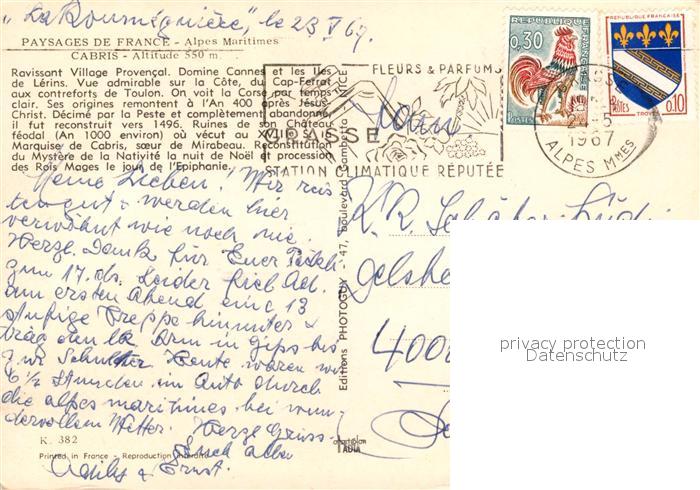 "La Bourniguière", le 23 V 67.
PAYSAGES DE FRANCE - Alpes Maritimes
CABRIS - Altitude 550 m.
Ravissant Village Provençal. Domine Cannes et les Iles
de Lérins. Vue admirable sur la Côte, du Cap-Ferrat
aux contreforts de Toulon. On voit la Corse par temps
clair. Ses origines remontent à l'An 400 après Jésus
Christ. Décimé par la Peste et complètement abandonné,
il fut reconstruit vers 1496. Ruines de son Château
féodal (An 1000 environ) où vécut au XVIII S. la
Marquise de Cabris, sœur de Mirabeau. Reconstitution
du Mystère de la Nativité la nuit de Noël et procession
des Rois Mages le jour de l'Epiphanie.
Meine Lieben! Wir
gut & werden hier
verwöhnt wie noch nie.
Herzl. Dank für Euer
zum 17. ds. Leider fiel Ad.
am ersten Abend eine 13
stufige Treppe hinunter &
trägt den Arm in Gips bis
z. Schulter. Heute waren wir
6 1/2 Stunden im Auto durch
die alpes maritimes bei wun-
dervollem Wetter. Herzl. Grüss
Euch allen
Ernst.
K. 382
Printed in France - Reproduction interdite
Editions PHOTOGUY - 47, Boulevard Gambetta - NICE
YADIA
FLEURS & PARFUMS
GRASSE
STATION CLIMATIQUE RÉPUTÉE
0,30
REPUBLIQUE FRANÇAISE
POSTES
REPUBLIQUE FRANÇAISE
POSTES
0,10
TROYES
GRASSE
1967
ALPES MMES
R. Schäfer
gelsh
4000
privacy protection
Datenschutz